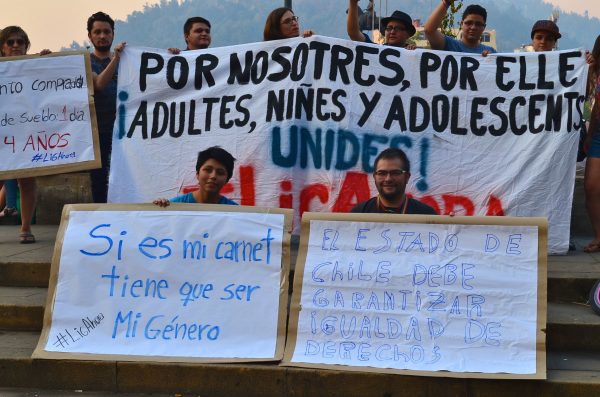 POR NOSOTRES, POR ELLE
¡ADULTES, NIÑES Y ADOLESCENTS
UNIDES!
#LicAhora
de sueldo: 1 día
4 AÑOS
#LIGAhora
Si es mi carnet
tiene que ser
Mi Género
#LicAhora
EL ESTADO DE
CHILE DEBE
GARANTIZAR
IGUALDAD DE
DERECHOS